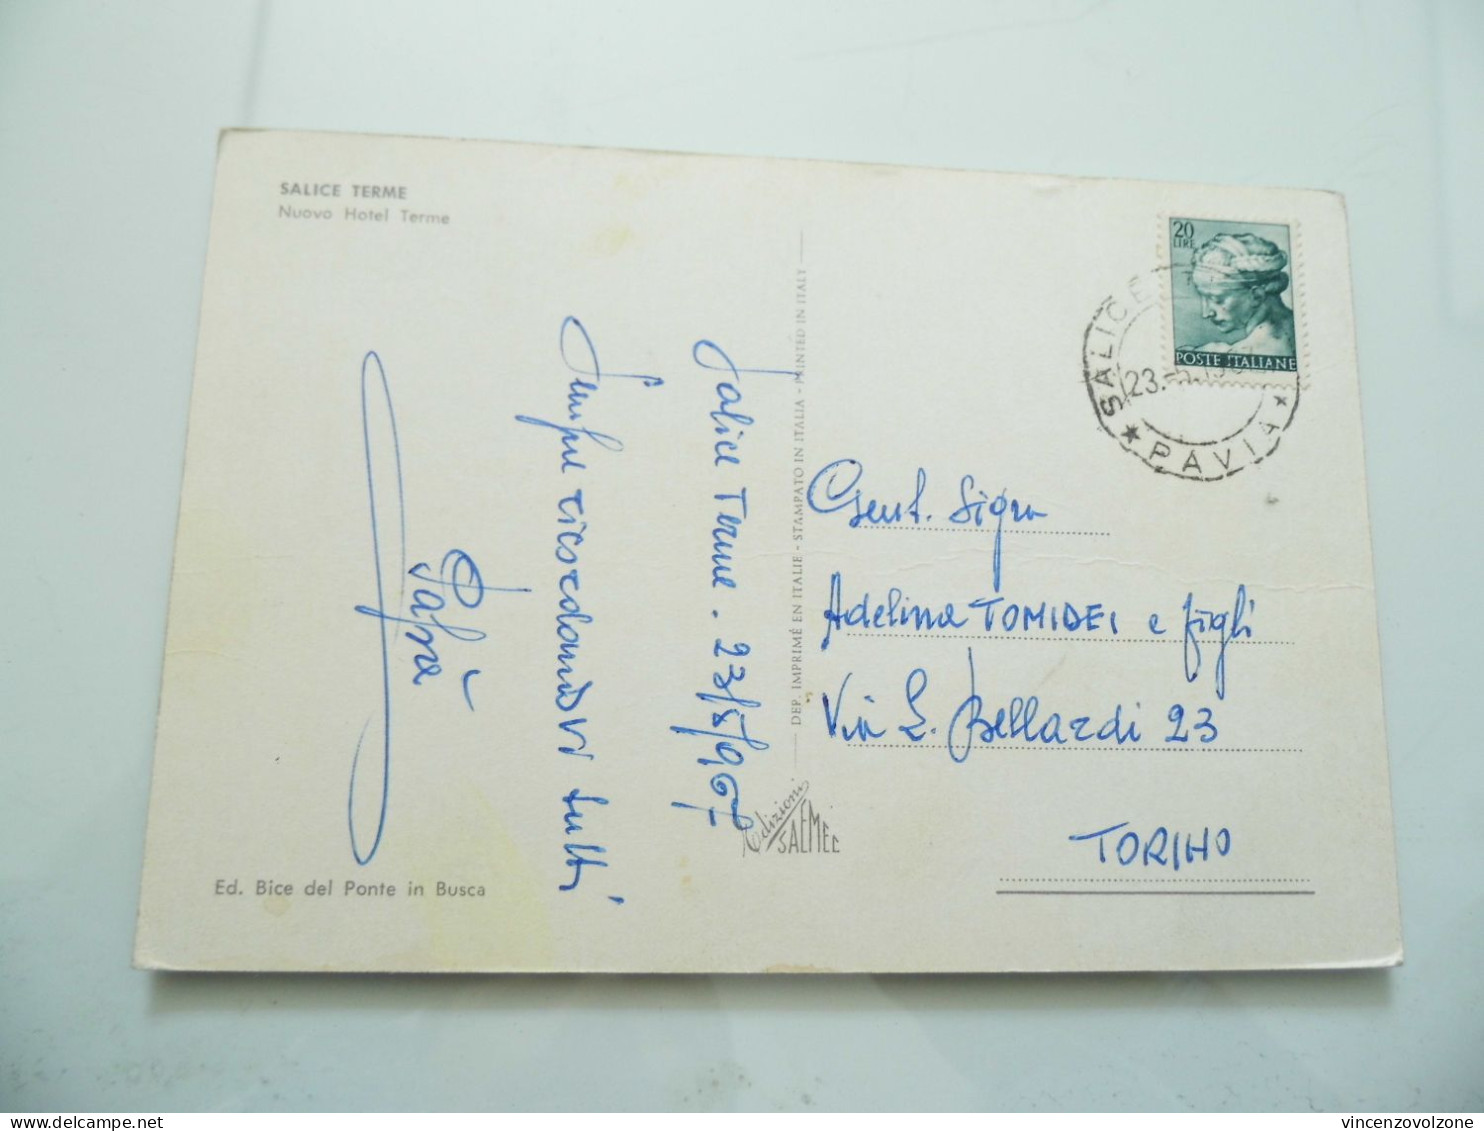 SALICE TERME
Nuovo Hotel Terme
Salice Terme. 23/5/967
Sempre ricordandovi tutti
Ed. Bice del Ponte in Busca
DEP. IMPRIMÉ EN ITALIE - STAMPATO IN ITALIA - PRINTED IN ITALY
Edizioni
SAEMEC
20
LIRE
POSTE ITALIANE
SALICE
23.
PAVIA
Gent. Sigra
Adelina TOMIDEI e figli
Via L. Bellardi 23
TORINO
vincenzovolzone